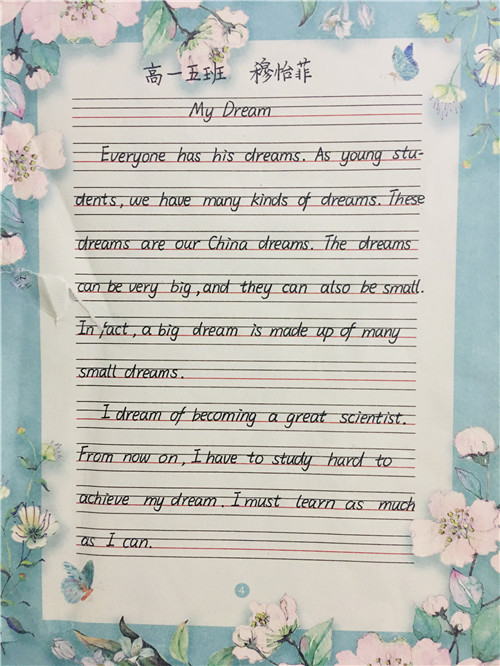 高一五班 穆怡菲
My Dream
Everyone has his dreams. As young stu-
dents, we have many kinds of dreams. These
dreams are our China dreams. The dreams
can be very big, and they can also be small.
In fact, a big dream is made up of many
small dreams.
I dream of becoming a great scientist.
From now on, I have to study hard to
achieve my dream. I must learn as much
as I can.
4